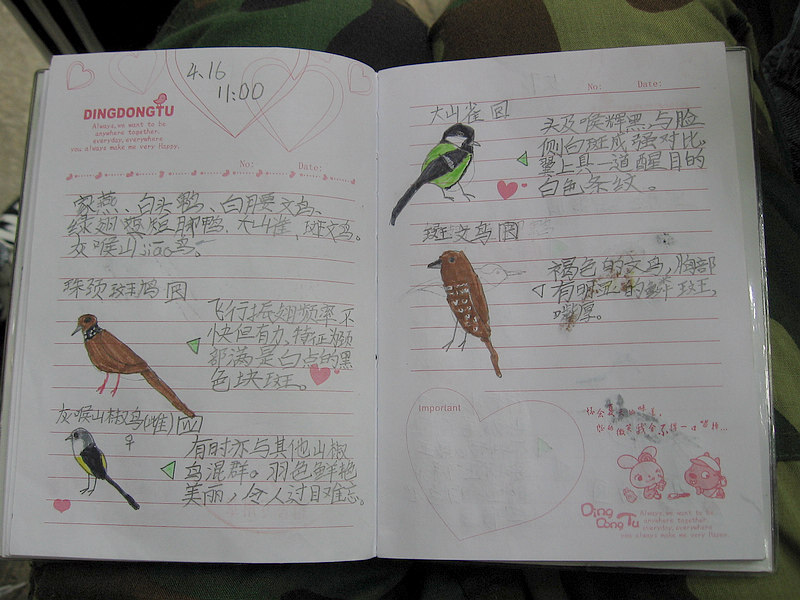 4.16
11:00
DINGDONGTU
Always, we want to be
anywhere together,
everyday, everywhere
you always make me very Happy.
No: Date:
家燕、白头鹎、白腰文鸟、
绿翅短脚鹎、大山雀、斑文鸟。
灰喉山jiāo鸟。
珠颈斑鸠 图
飞行振翅频率不
快但有力,特征为颈
部满是白点的黑
色块斑。
灰喉山椒鸟(雌)图
♀
有时亦与其他山椒
鸟混群。羽色鲜艳
美丽,令人过目难忘。
No: Date:
大山雀 图
头及喉辉黑,与脸
侧白斑成强对比,
翼上具一道醒目的
白色条纹。
斑文鸟 图
褐色的文鸟,胸部
有明显的鳞斑,
嘴厚。
Important
Ding Dong Tu
Always, we want to be
anywhere together
everyday, everywhere
you always make me very Happy.